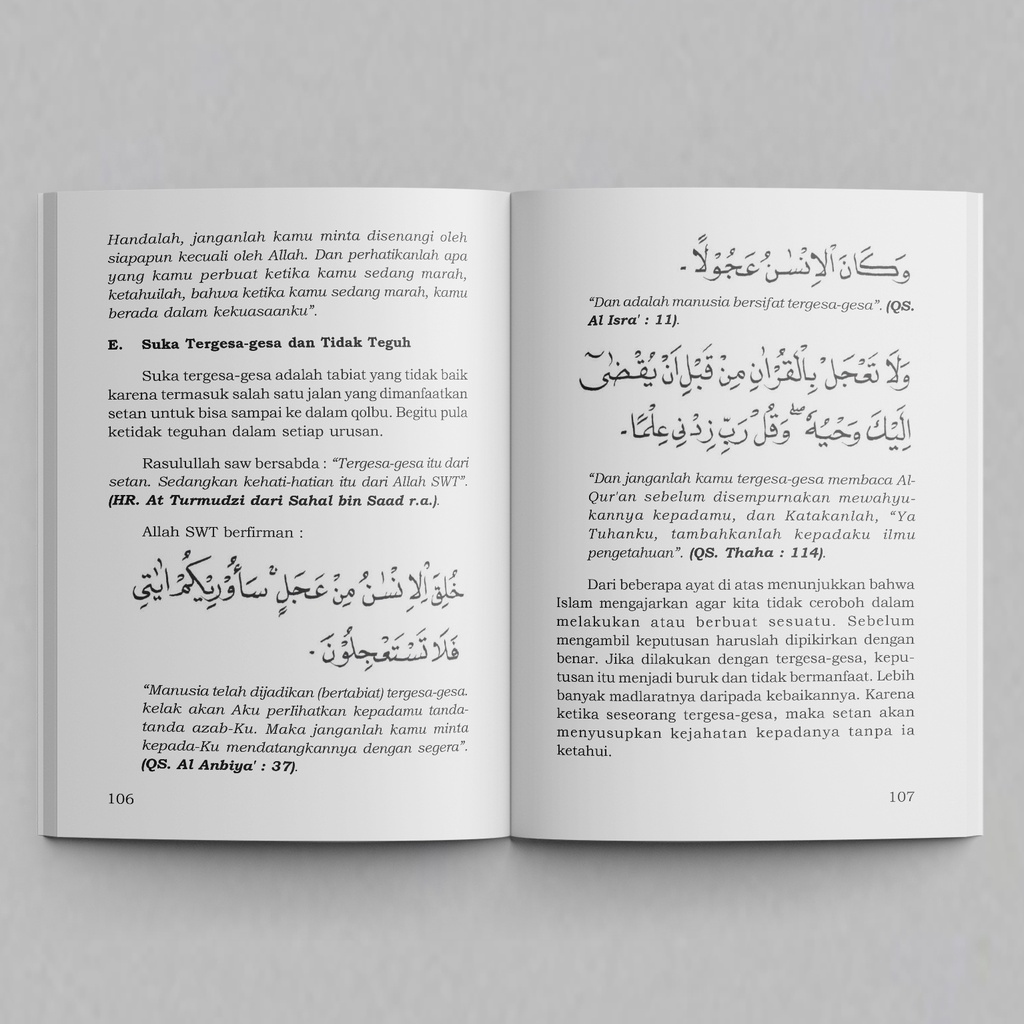 Handalah, janganlah kamu minta disenangi oleh
siapapun kecuali oleh Allah. Dan perhatikanlah apa
yang kamu perbuat ketika kamu sedang marah,
ketahuilah, bahwa ketika kamu sedang marah, kamu
berada dalam kekuasaanku”.
E. Suka Tergesa-gesa dan Tidak Teguh
Suka tergesa-gesa adalah tabiat yang tidak baik
karena termasuk salah satu jalan yang dimanfaatkan
setan untuk bisa sampai ke dalam qolbu. Begitu pula
ketidak teguhan dalam setiap urusan.
Rasulullah saw bersabda : “Tergesa-gesa itu dari
setan. Sedangkan kehati-hatian itu dari Allah SWT”.
(HR. At Turmudzi dari Sahal bin Saad r.a.).
Allah SWT berfirman :
خُلِقَ اْلاِنْسٰنُ مِنْ عَجَلٍ ۗ سَأُورِيْكُمْ اٰيٰتِيْ
فَلَا تَسْتَعْجِلُوْنَ .
“Manusia telah dijadikan (bertabiat) tergesa-gesa.
kelak akan Aku perlihatkan kepadamu tanda-
tanda azab-Ku. Maka janganlah kamu minta
kepada-Ku mendatangkannya dengan segera”.
(QS. Al Anbiya' : 37).
106
وَكَانَ اْلاِنْسٰنُ عَجُوْلًا .
“Dan adalah manusia bersifat tergesa-gesa”. (QS.
Al Isra' : 11).
وَلَا تَعْجَلْ بِالْقُرْاٰنِ مِنْ قَبْلِ اَنْ يُقْضٰىٓ
اِلَيْكَ وَحْيُهٗ ۖ وَقُلْ رَبِّ زِدْنِيْ عِلْمًا .
“Dan janganlah kamu tergesa-gesa membaca Al-
Qur'an sebelum disempurnakan mewahyu-
kannya kepadamu, dan Katakanlah, “Ya
Tuhanku, tambahkanlah kepadaku ilmu
pengetahuan”. (QS. Thaha : 114).
Dari beberapa ayat di atas menunjukkan bahwa
Islam mengajarkan agar kita tidak ceroboh dalam
melakukan atau berbuat sesuatu. Sebelum
mengambil keputusan haruslah dipikirkan dengan
benar. Jika dilakukan dengan tergesa-gesa, kepu-
tusan itu menjadi buruk dan tidak bermanfaat. Lebih
banyak madlaratnya daripada kebaikannya. Karena
ketika seseorang tergesa-gesa, maka setan akan
menyusupkan kejahatan kepadanya tanpa ia
ketahui.
107